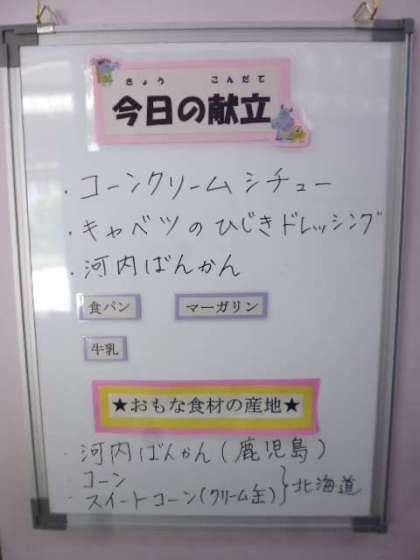 きょう こんだて
今日の献立
・コーンクリームシチュー
・キャベツのひじきドレッシング
・河内ばんかん
食パン マーガリン
牛乳
★おもな食材の産地★
・河内ばんかん(鹿児島)
・コーン
・スイートコーン(クリーム缶)}北海道